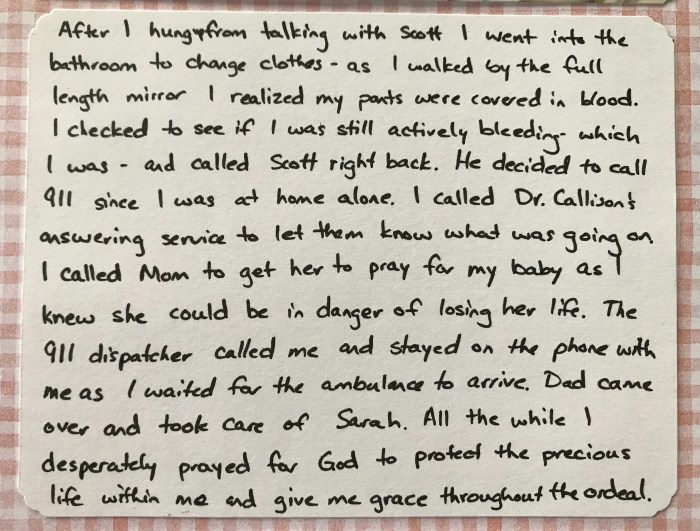 After I hung up from talking with Scott I went into the
bathroom to change clothes - as I walked by the full
length mirror I realized my pants were covered in blood.
I checked to see if I was still actively bleeding - which
I was - and called Scott right back. He decided to call
911 since I was at home alone. I called Dr. Callison's
answering service to let them know what was going on
I called Mom to get her to pray for my baby as I
knew she could be in danger of losing her life. The
911 dispatcher called me and stayed on the phone with
me as I waited for the ambulance to arrive. Dad came
over and took care of Sarah. All the while I
desperately prayed for God to protect the precious
life within me and give me grace throughout the ordeal.